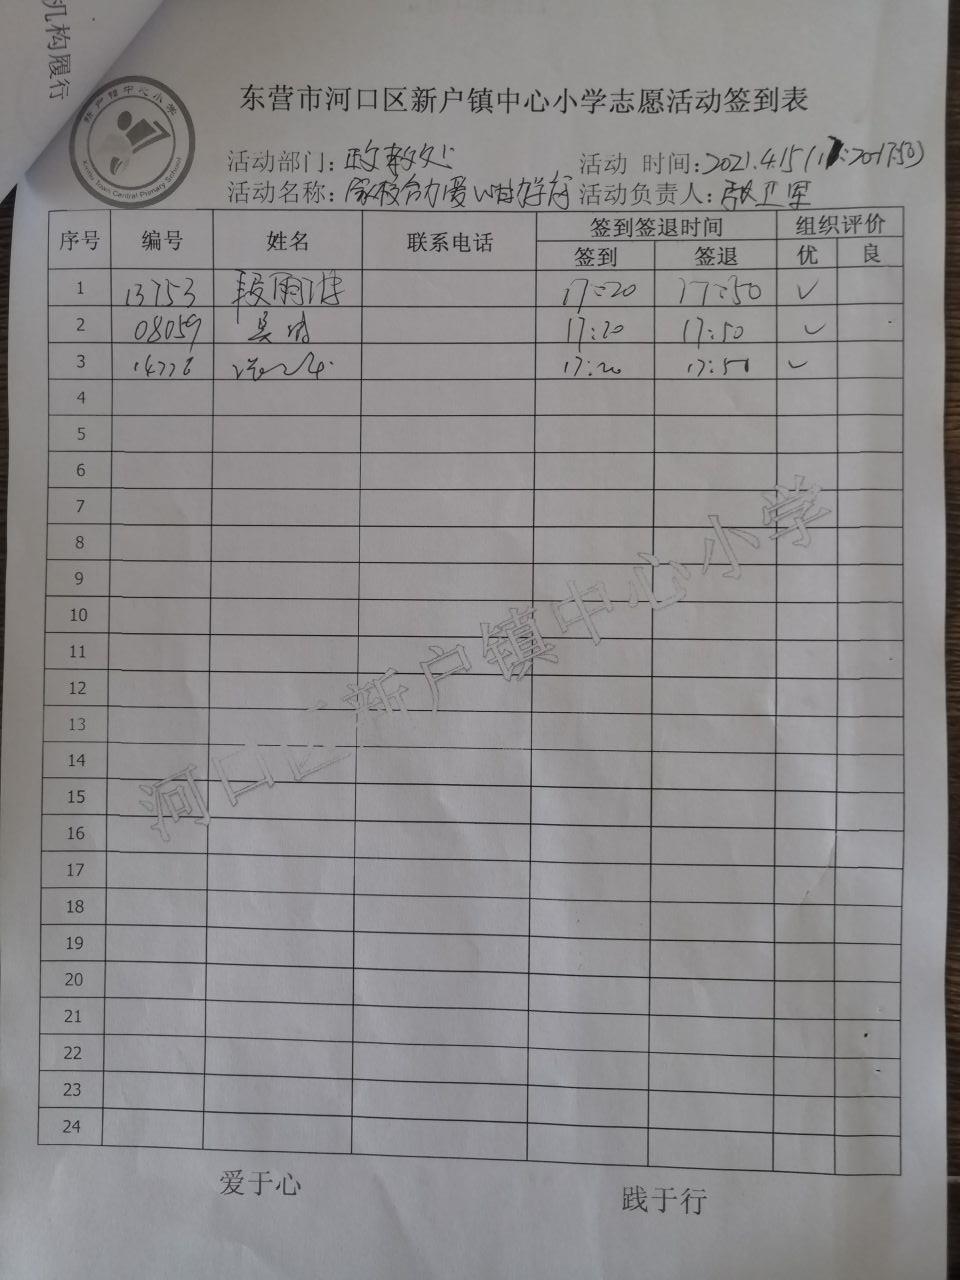 机构履行
新户镇中心小学
Xinhu Town Central Primary School
东营市河口区新户镇中心小学志愿活动签到表
活动部门:政教处 活动 时间:2021.4.15(17:20-17:50)
活动名称:家校合力爱 活动负责人:张卫军
序号 编号 姓名 联系电话 签到签退时间 组织评价
签到 签退 优 良
1 13753 段雨 17:20 17:50 ✓
2 08059 吴 17:20 17:50 ✓
3 17:20 17:50 ✓
4
5
6
7
8
9
10
11
12
13
14
15
16
17
18
19
20
21
22
23
24
河口区新户镇中心小学
爱于心 践于行